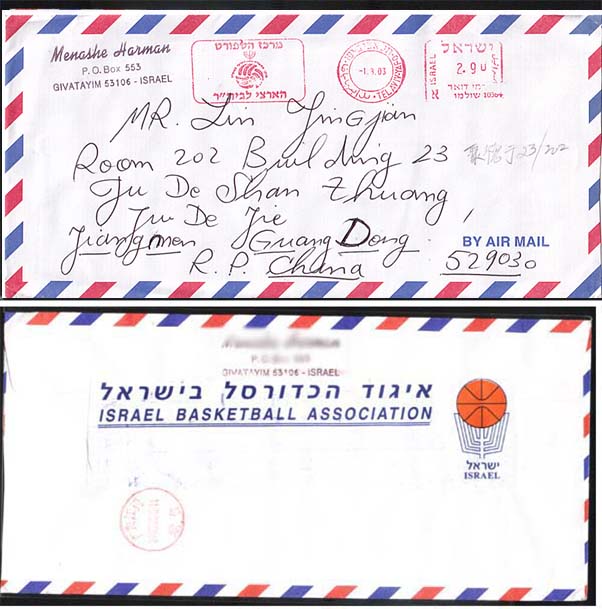 Menashe Harman
P.O. Box 553
GIVATAYIM 53106 - ISRAEL
מרכז הספורט
הארצי לביה"ר
-1.8.03
TELAVYAFO
ישראל
ISRAEL
2.90
דמי דואר
שולמו 10364
א
MR. Lin Jingjian
Room 202 Building 23
Ju De Shan Zhuang,
Ju De Jie
Jiangmen Guang Dong.
R. P. China
BY AIR MAIL
529030
23/202
P.O. Box 553
GIVATAYIM 53106 - ISRAEL
איגוד הכדורסל בישראל
ISRAEL BASKETBALL ASSOCIATION
ישראל
ISRAEL